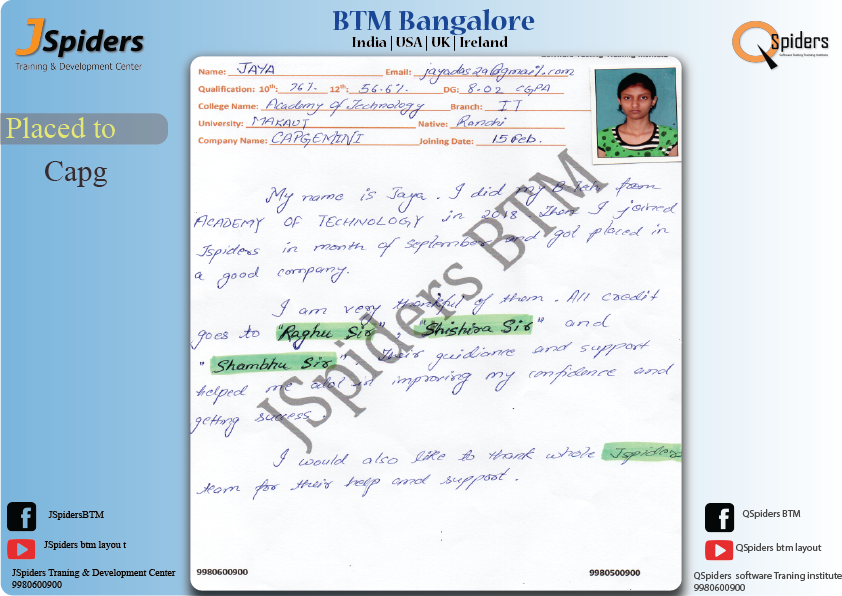 JSpiders
Training & Development Center
BTM Bangalore
India | USA | UK | Ireland
QSpiders
Software Testing Training Institute
Placed to
Capg
Name: JAYA Email: jayadas29@gmail.com
Qualification: 10th: 76% 12th: 56.6% DG: 8.02 CGPA
College Name: Academy of Technology Branch: IT
University: MAKAUT Native: Ranchi
Company Name: CAPGEMINI Joining Date: 15 Feb.
My name is Jaya. I did my B-Teh from
ACADEMY OF TECHNOLOGY in 2018. Then I joined
Jspiders in month of September and got placed in
a good company.
I am very thankful of them. All credit
goes to "Raghu Sir", "Shishira Sir" and
"Shambhu Sir". Their guidiance and support
helped me alot in improving my confidence and
getting success.
I would also like to thank whole Jspiders
team for their help and support.
JSpiders BTM
9980600900
9980500900
JSpidersBTM
JSpiders btm layou t
JSpiders Traning & Development Center
9980600900
QSpiders BTM
QSpiders btm layout
QSpiders software Traning institute
9980600900